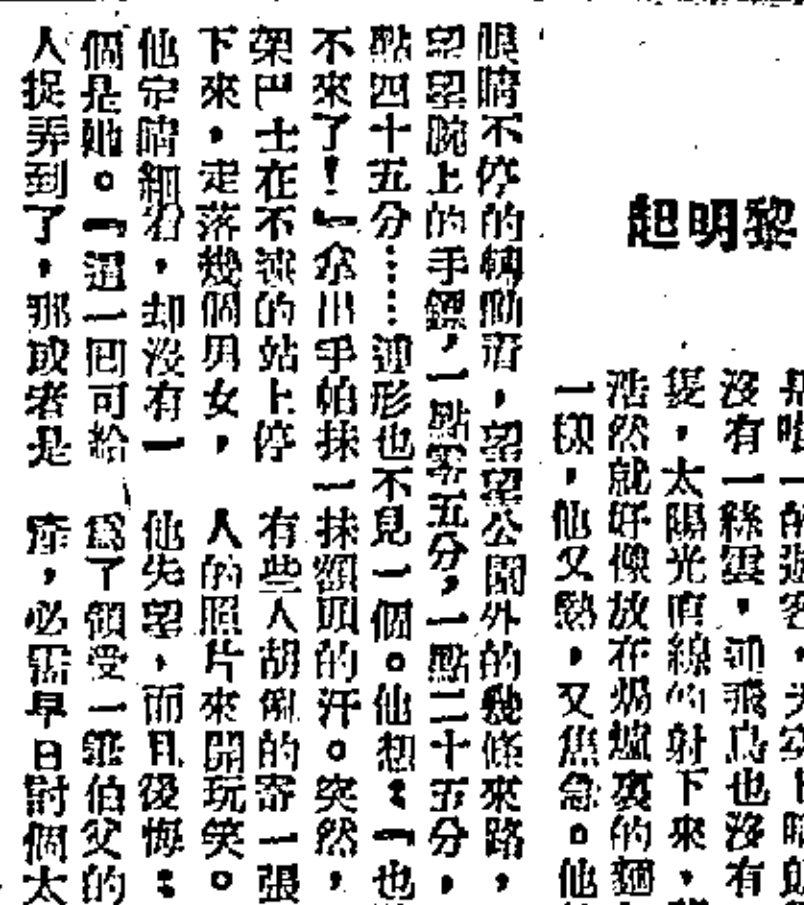 黎明起
沒有一絲雲,連飛鳥也沒有
隻,太陽光直線的射下來,
浩然就好像放在焗爐裏的麵
一,他又熱,又焦急。他
眼睛不停的轉動着,望望公園外的幾條來路,
望望腕上的手錶,一點零五分,一點二十五分,
點四十五分……連形也不見一個。他想:「也
不來了!」拿出手帕抹一抹額頭的汗。突然,
架巴士在不遠的站上停
下來,走落幾個男女,
他定睛細看,却沒有一
個是她。「這一回可給
人捉弄到了,那或者是
有些人胡亂的寄一張
人的照片來開玩笑。
他失望,而且後悔:
為了領受一筆伯父的
產,必需早日討個太